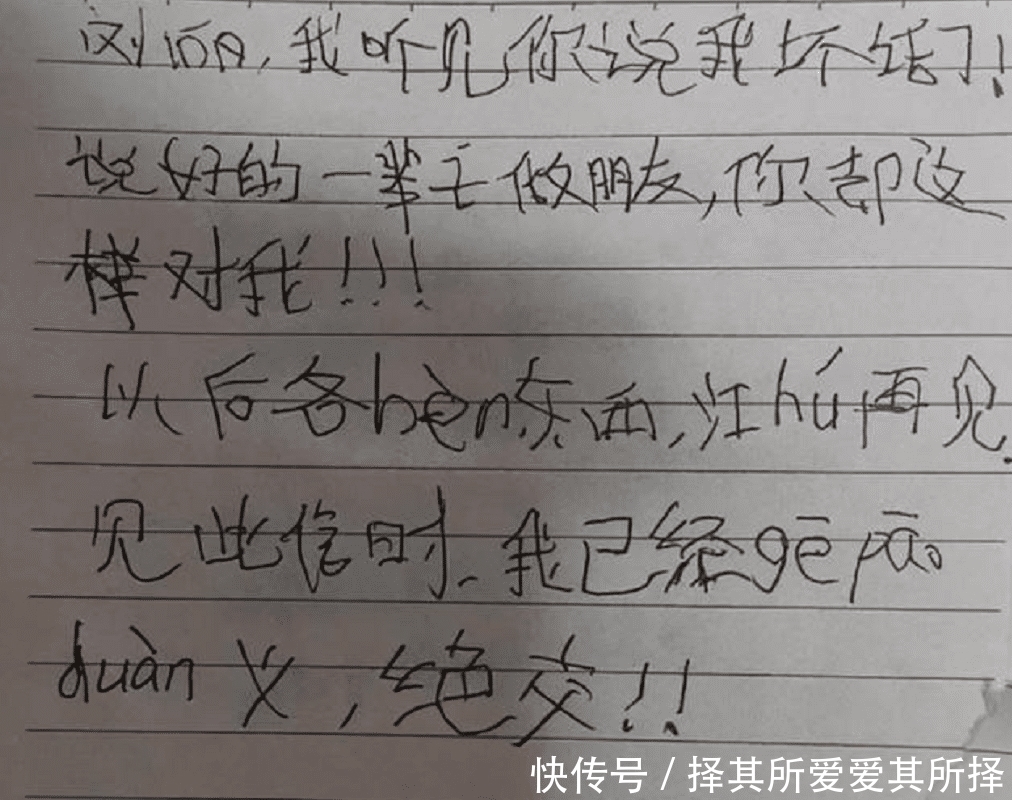 刘佰冉,我听见你说我坏话了!
说好的一辈子做朋友,你却这
样对我!!!
以后各bèn东西,江hú再见.
见此信时.我已经gē pāo
duàn义,绝交!!
快传号/择其所爱爱其所择